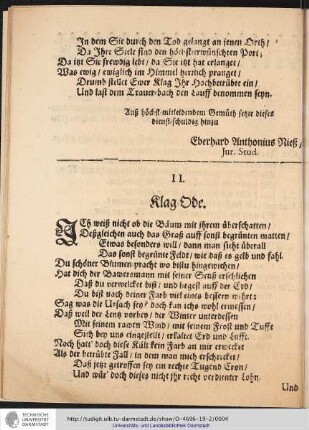 In dem Sie durch den Tod gelangt an jenen Orth/
Da Jhre Seele find den höchsterwünschten Port;
Da itzt Sie frewdig lebt/ da Sie itzt hat erlanget/
Was ewig/ ewiglich im Himmel herrlich pranget/
Drumb stellet Ewer Klag Jhr Hochbetrübte ein/
Und last dem Trauer-bach den Lauff benommen seyn.
Auß höchst-mitleidendem Gemüth setzte dieses
dienst-schuldig hinzu
Eberhard Anthonius Nieß/
Jur. Stud.
II.
Klag Ode.
ICh weiß nicht ob die Bäum mit ihrem überschatten/
Deßgleichen auch das Graß auff sonst begrünten matten/
Etwas besonders will/ dann man sieht überall
Das sonst begrünte Feldt/ wie daß es gelb und fahl.
Du schöner Blumen-pracht wo bistu hingewichen/
Hat dich der Bawersmann mit seiner Senß erschlichen
Daß du verwelcket bist/ und liegest auff der Erd/
Du bist nach deiner Farb viel eines bessern wehrt:
Sag was die Ursach sey? doch kan ichs wohl ermessen/
Daß weil der Lentz vorbey/ der Winter unterdessen
Mit seinem rawen Wind/ mit seinem Frost und Tufft
Sich bey uns eingestellt/ erkaltet Erd und Lufft.
Noch hatt' doch diese Kält kein Farb an mir erwecket
Als der betrübte Fall/ in dem man mich erschrecket
Daß jetzt getroffen sey ein rechte Tugend Cron/
Und wär' doch dieses nicht ihr recht verdienter Lohn.
Und
TECHNISCHE
UNIVERSITÄT
DARMSTADT
http://tudigit.ulb.tu-darmstadt.de/show/O-4696-19-2/0004
Universitäts- und Landesbibliothek Darmstadt